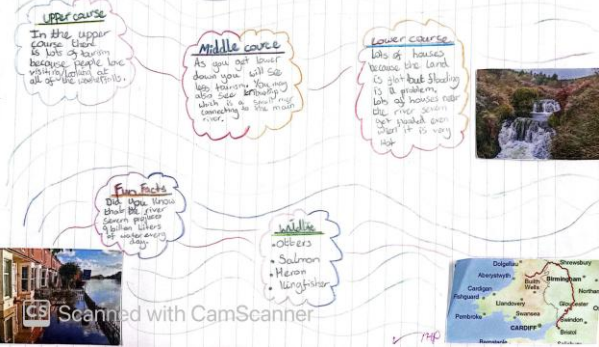 Upper course
In the upper
course there
is lots of tourism
because people love
visiting/looking at
all of the waterfalls.
Middle course
As you get lower
down you will see
less tourism. You may
also see
which is a small river
connecting to the main
river.
Lower course
Lots of houses
because the land
is flat but flooding
is a problem.
Lots of houses near
the river severn
get flooded even
when it is very
Hot
Fun Facts
Did you know
that the river
severn produces
9 billion liters
of water every
day.
Wildlife
• Otters
• Salmon
• Heron
• Kingfisher
Dolgellau
Shrewsbury
Aberystwyth
Birmingham
Cardigan
Builth
Wells
Northam
Fishguard
Llandovery
Gloucester
Pembroke
Swansea
Swindon
CARDIFF
Bristol
CS Scanned with CamScanner